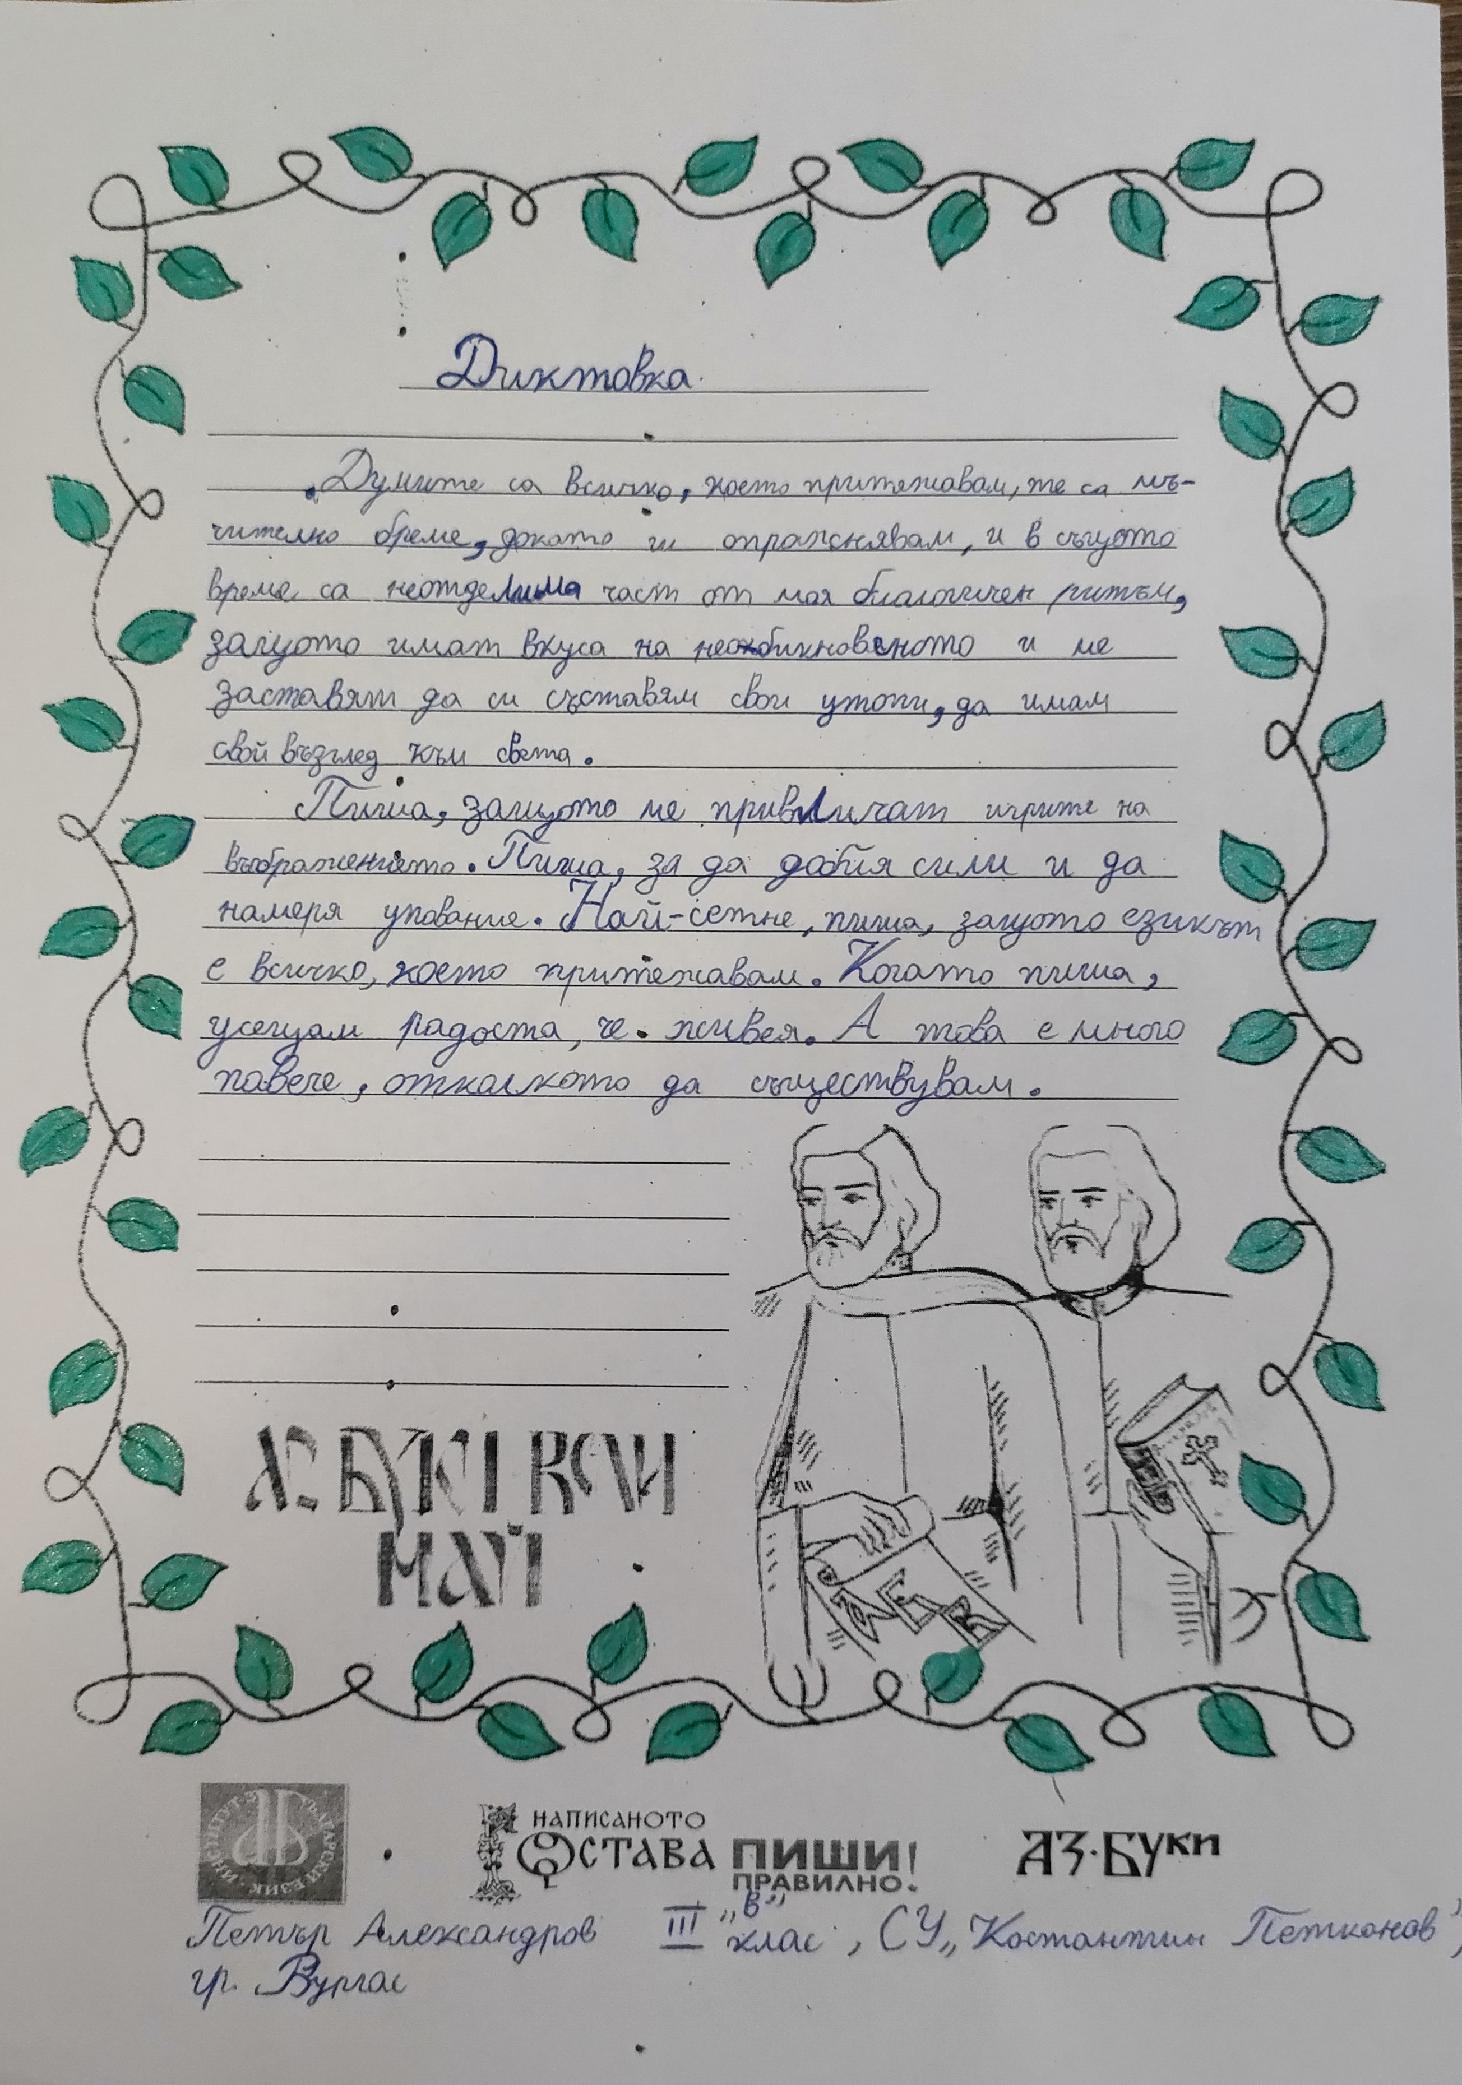 Диктовка
Думите са всичко, което притежавам, те са мъ-
чително бреме, докато ги отрахнявам, и в същото
време са неотделима част от моя биологичен ритъм,
защото имат вкуса на необикновеното и ме
заставят да си съставям свои утопи, да имам
свой възглед към света.
Пиша, защото ме привличат игрите на
въображението. Пиша, за да добия сили и да
намеря упование. Най-сетне, пиша, защото езикът
е всичко, което притежавам. Когато пиша,
усещам радоста, че живея. А това е много
павече, отколкото да съществувам.
АЗ БУКИ ВЕДИ
МАЙ
НАПИСАНОТО
ОСТАВА ПИШИ!
ПРАВИЛНО.
АЗ·БУКИ
Петър Александров III „в” клас, СУ „Костантин Петканов”,
гр. Бургас